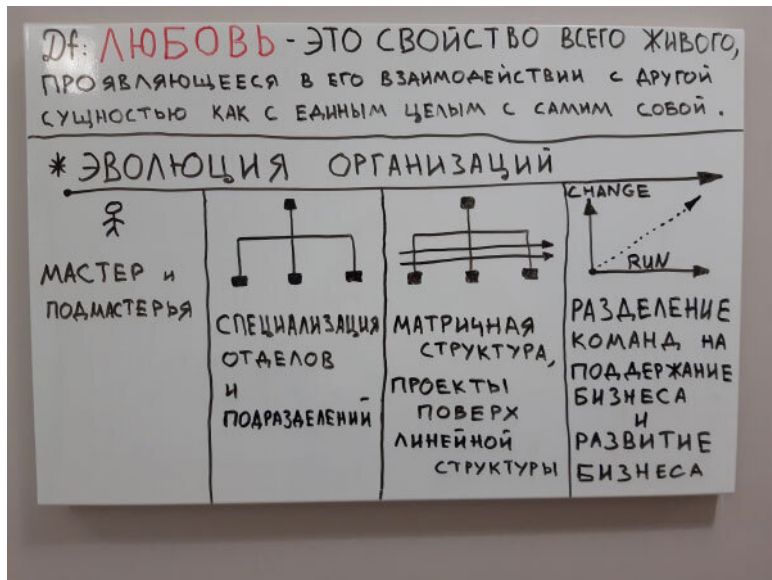 Df: ЛЮБОВЬ - ЭТО СВОЙСТВО ВСЕГО ЖИВОГО,
ПРОЯВЛЯЮЩЕЕСЯ В ЕГО ВЗАИМОДЕЙСТВИИ С ДРУГОЙ
СУЩНОСТЬЮ КАК С ЕДИНЫМ ЦЕЛЫМ С САМИМ СОБОЙ.
* ЭВОЛЮЦИЯ ОРГАНИЗАЦИЙ
МАСТЕР И
ПОДМАСТЕРЬЯ
СПЕЦИАЛИЗАЦИЯ
ОТДЕЛОВ
И
ПОДРАЗДЕЛЕНИЙ
МАТРИЧНАЯ
СТРУКТУРА,
ПРОЕКТЫ
ПОВЕРХ
ЛИНЕЙНОЙ
СТРУКТУРЫ
CHANGE
RUN
РАЗДЕЛЕНИЕ
КОМАНД НА
ПОДДЕРЖАНИЕ
БИЗНЕСА
И
РАЗВИТИЕ
БИЗНЕСА